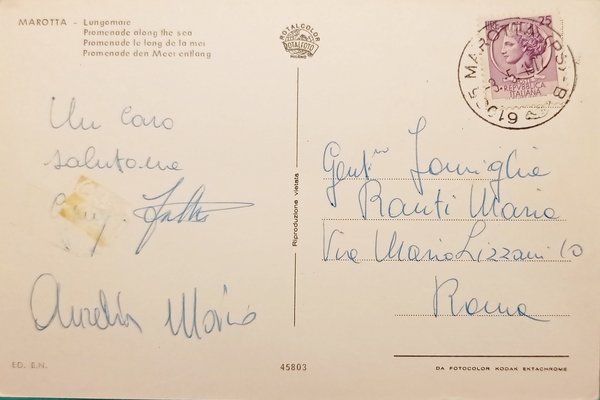 MAROTTA - Lungomare
Promenade along the sea
Promenade le long de la mer
Promenade den Meer entlang
ROTALCOLOR
ROTALFOTO
MILANO
LIRE 25
REPVBBLICA
ITALIANA
61035 MAROTTA (PS) - B
Un caro
saluto
Riproduzione vietata
Gent.ma Famiglia
Ranti Mario
Via Mario Lizzani 10
Roma
Aurelia Mario
ED. B.N.
45803
DA FOTOCOLOR KODAK EKTACHROME